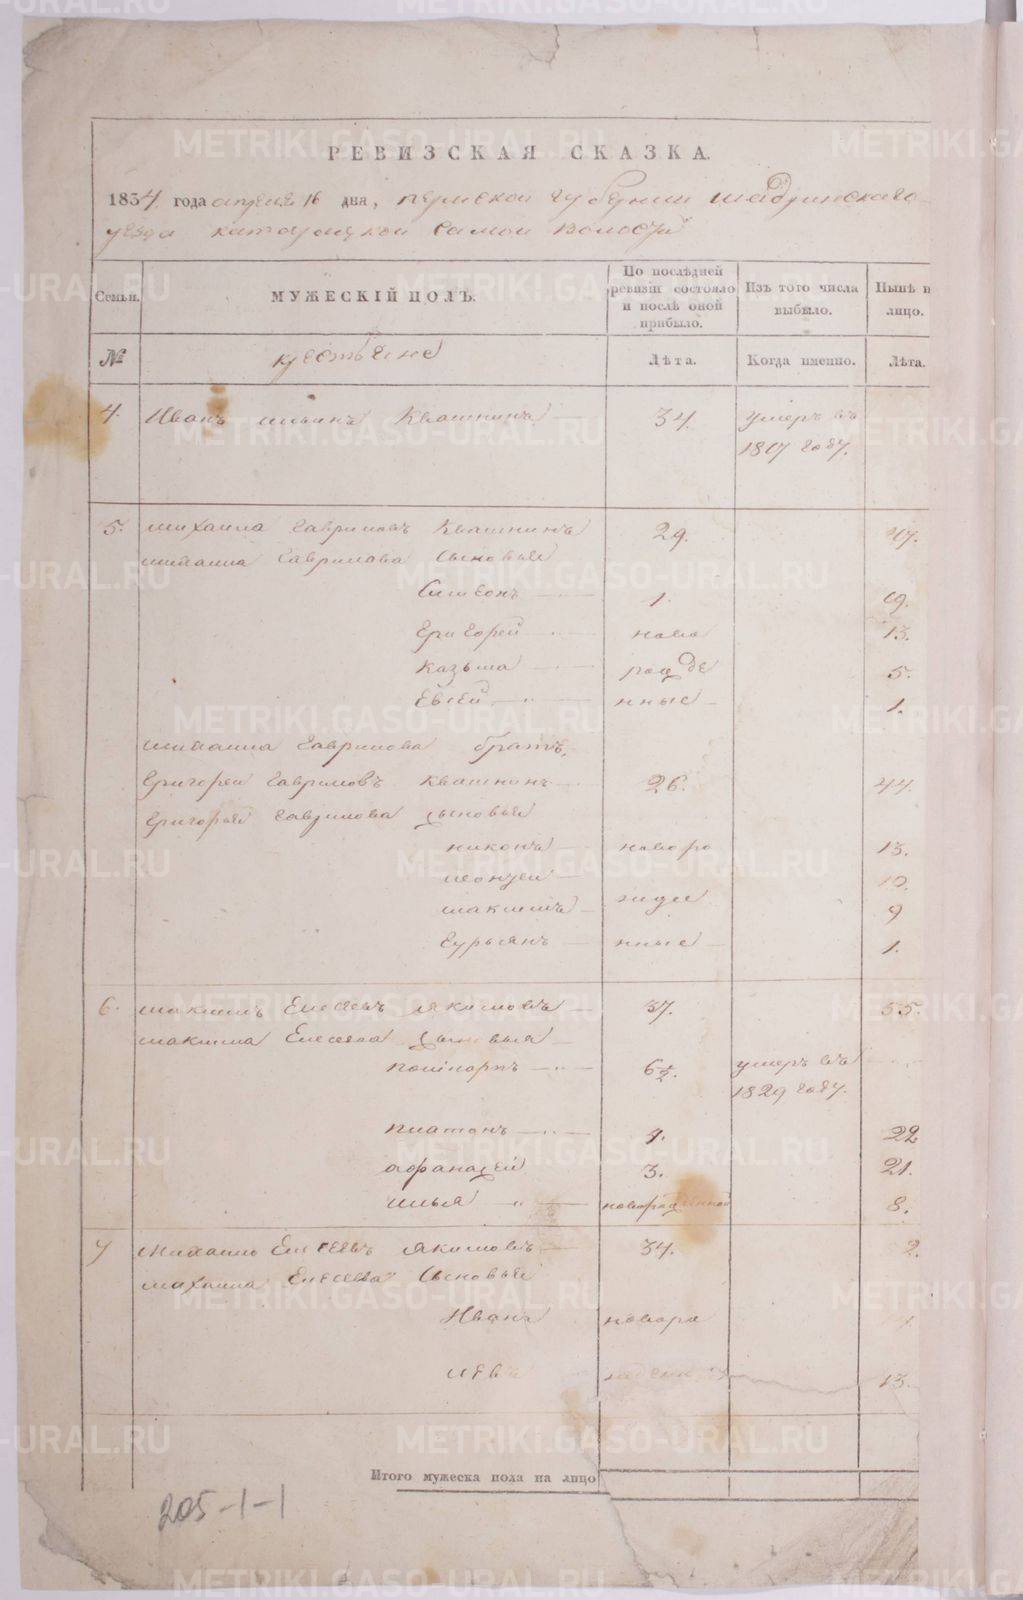 РЕВИЗСКАЯ СКАЗКА.
1834 года апреля 16 дня, пермской губернии шадринского
уезда катайской самой волости
Семьи.
МУЖЕСКІЙ ПОЛЪ.
По послѣдней ревизіи состояло и послѣ оной прибыло.
Изъ того числа выбыло.
Нынѣ н лицо.
№
крестьяне
Лѣта.
Когда именно.
Лѣта.
4. Иванъ ильинъ Квашнинъ 34. умеръ въ
1817 году.
5. михаила гавриловъ Квашнинъ 29. 47.
михаила гаврилова сыновья
Симеонъ 1. 19.
григорей ново 13.
казьма рожде 5.
Евсей нные 1.
михаила гаврилова братъ
григорей гавриловъ квашнинъ 26. 44.
григорья гаврилова сыновья
никонъ новоро 13.
леонтей 10.
максимъ жде 9
гурьянъ нные 1.
6. максимъ Елесеевъ якимовъ 37. 55.
максима Елесеева сыновья
6½. умеръ въ
1829 году.
платонъ 4. 22
афанасей 3. 21.
илья новорожденной 8.
7 михаило Елесеевъ якимовъ 34. 2.
михаила Елесеева сыновья
Иванъ новоро
13.
Итого мужеска пола на лицо
205-1-1
METRIKI.GASO-URAL.RU